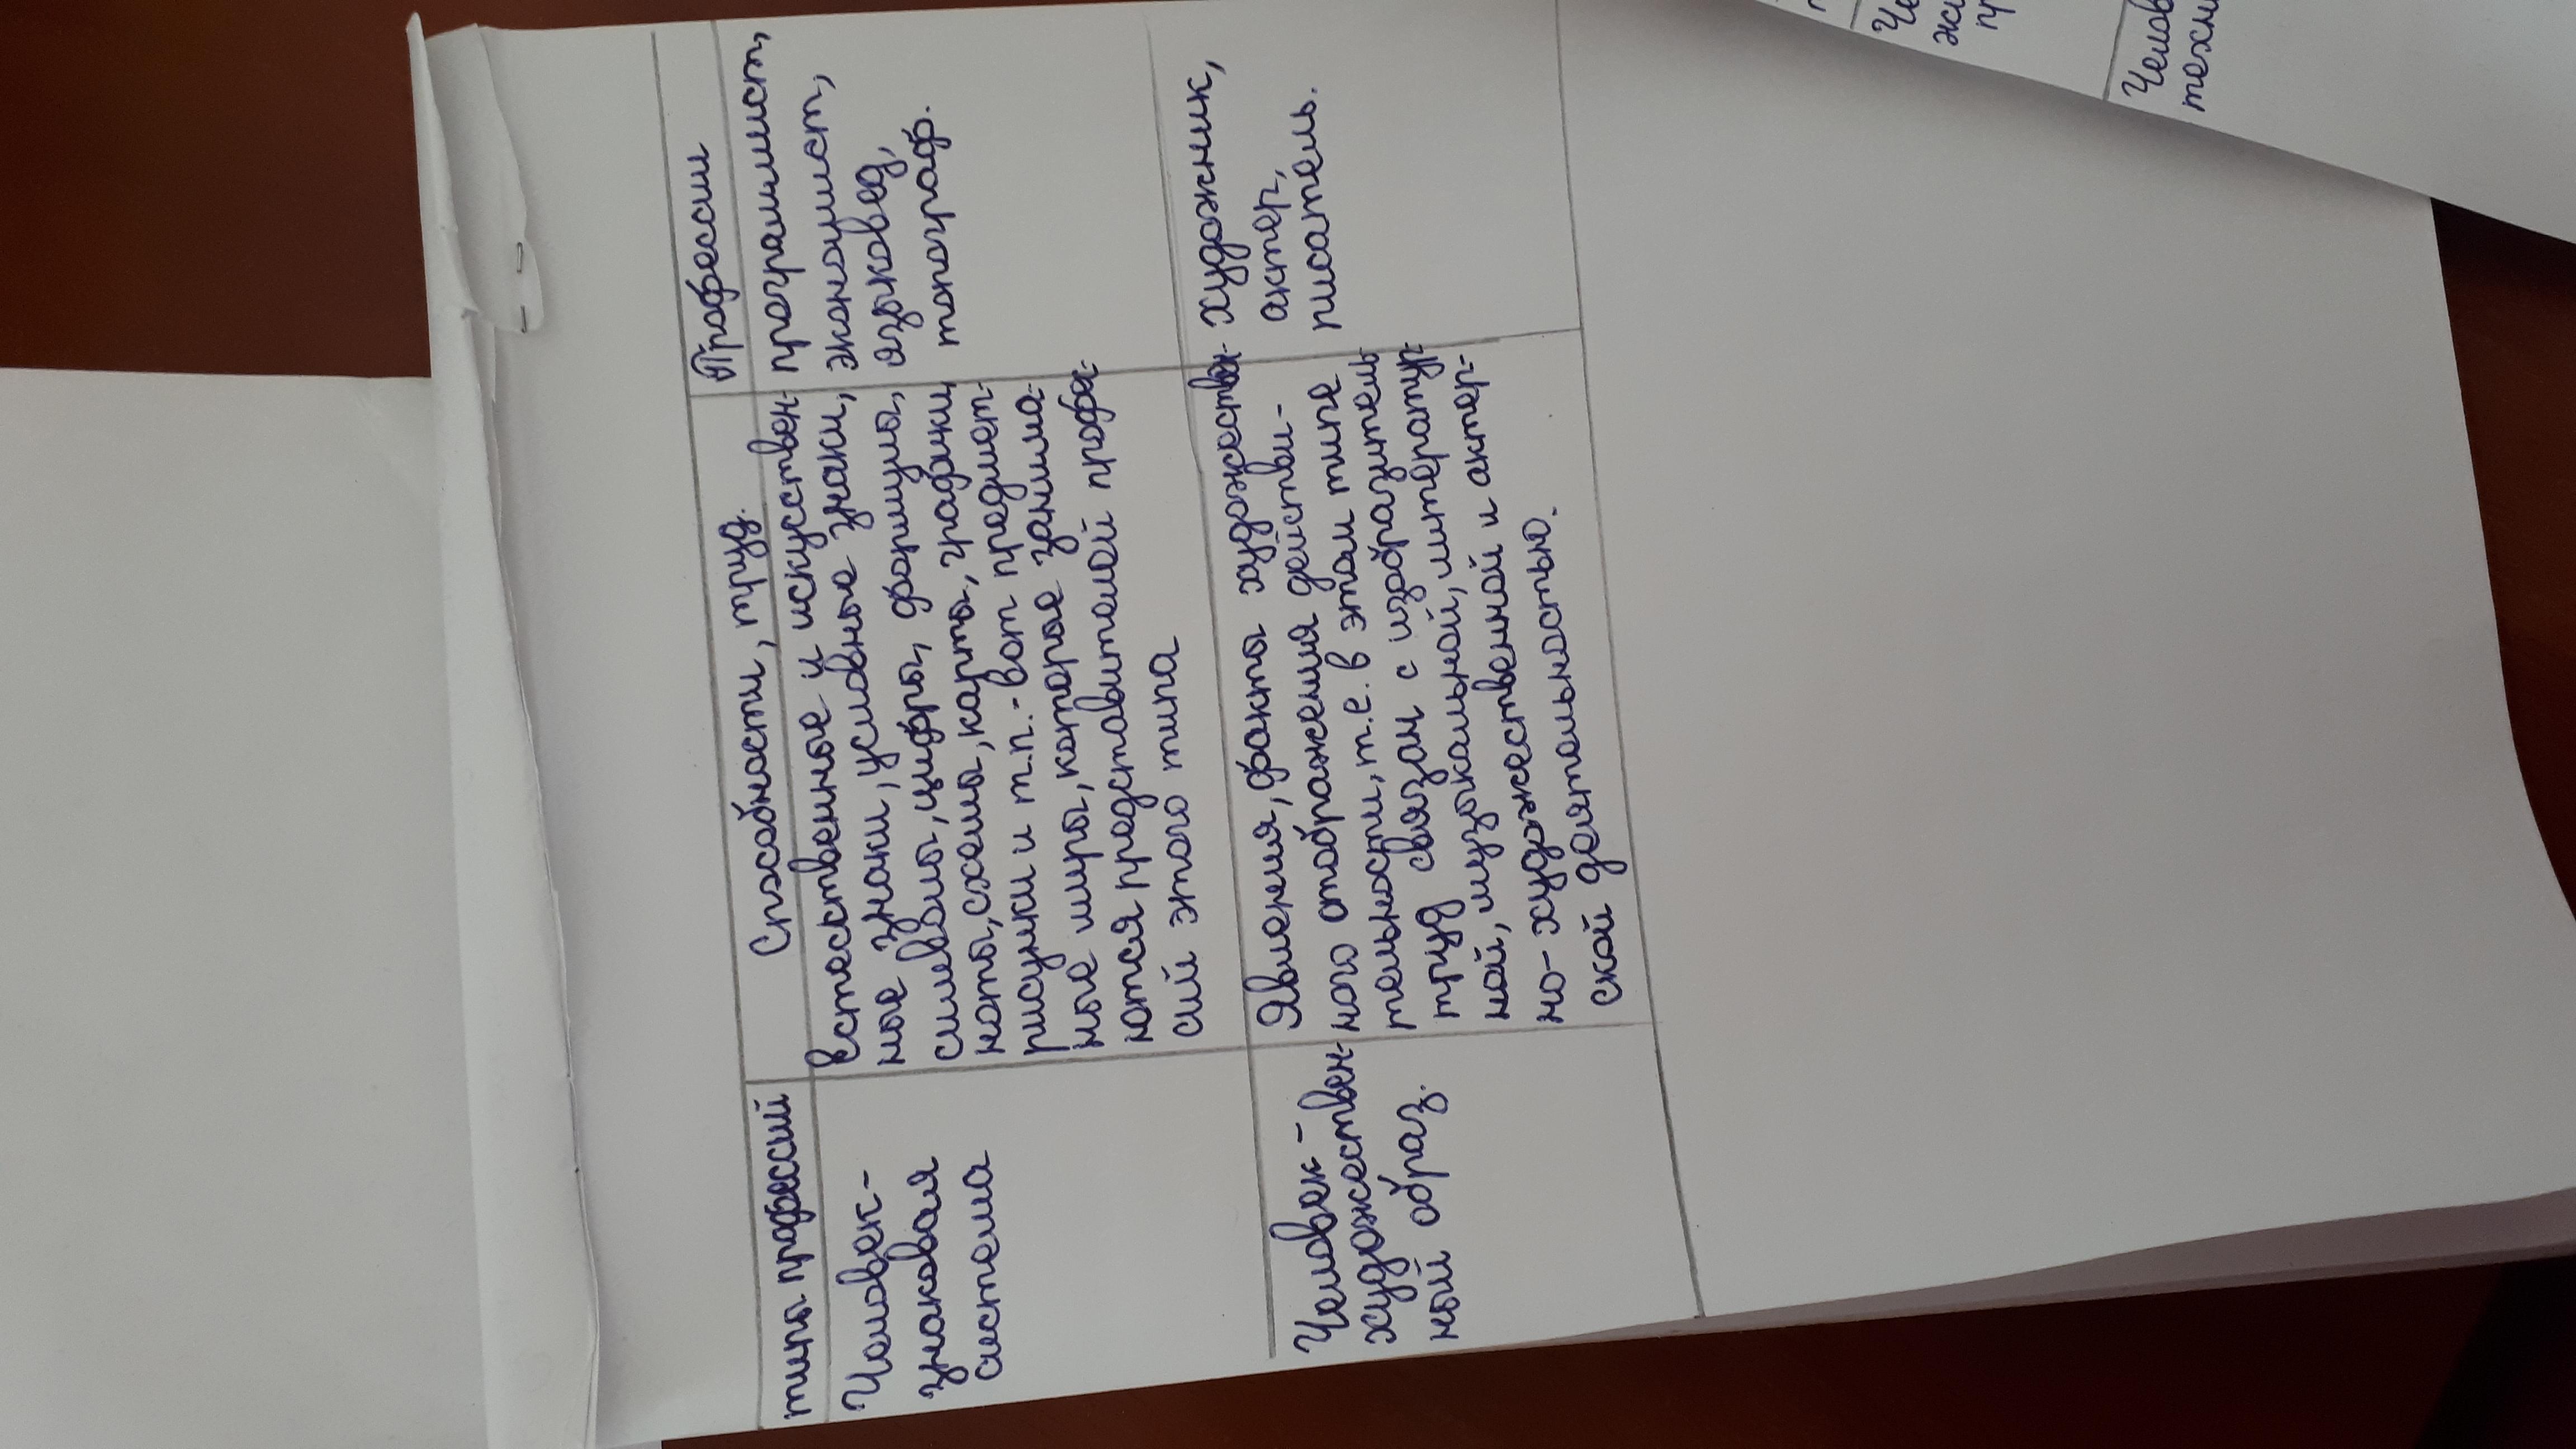 типы профессий
Способности, труд.
Профессии
Человек-
знаковая
система
Естественные и искусствен-
ные знаки, условные знаки,
символы, цифры, формулы,
ноты, схемы, карты, графики,
рисунки и т.п.-вот предмет-
ные миры, которые занима-
ются представителей профес-
сий этого типа
программист,
экономист,
языковед,
топограф.
Человек-
художествен-
ный образ.
Явления, факты художествен-
ного отображения действи-
тельности, т.е. в этом типе
труд связан с изобразитель-
ной, музыкальной, литератур-
ной, художественной и актер-
но-художественной
ской деятельностью.
художник,
актер,
писатель.
Че
жи
пр
Челов
техни